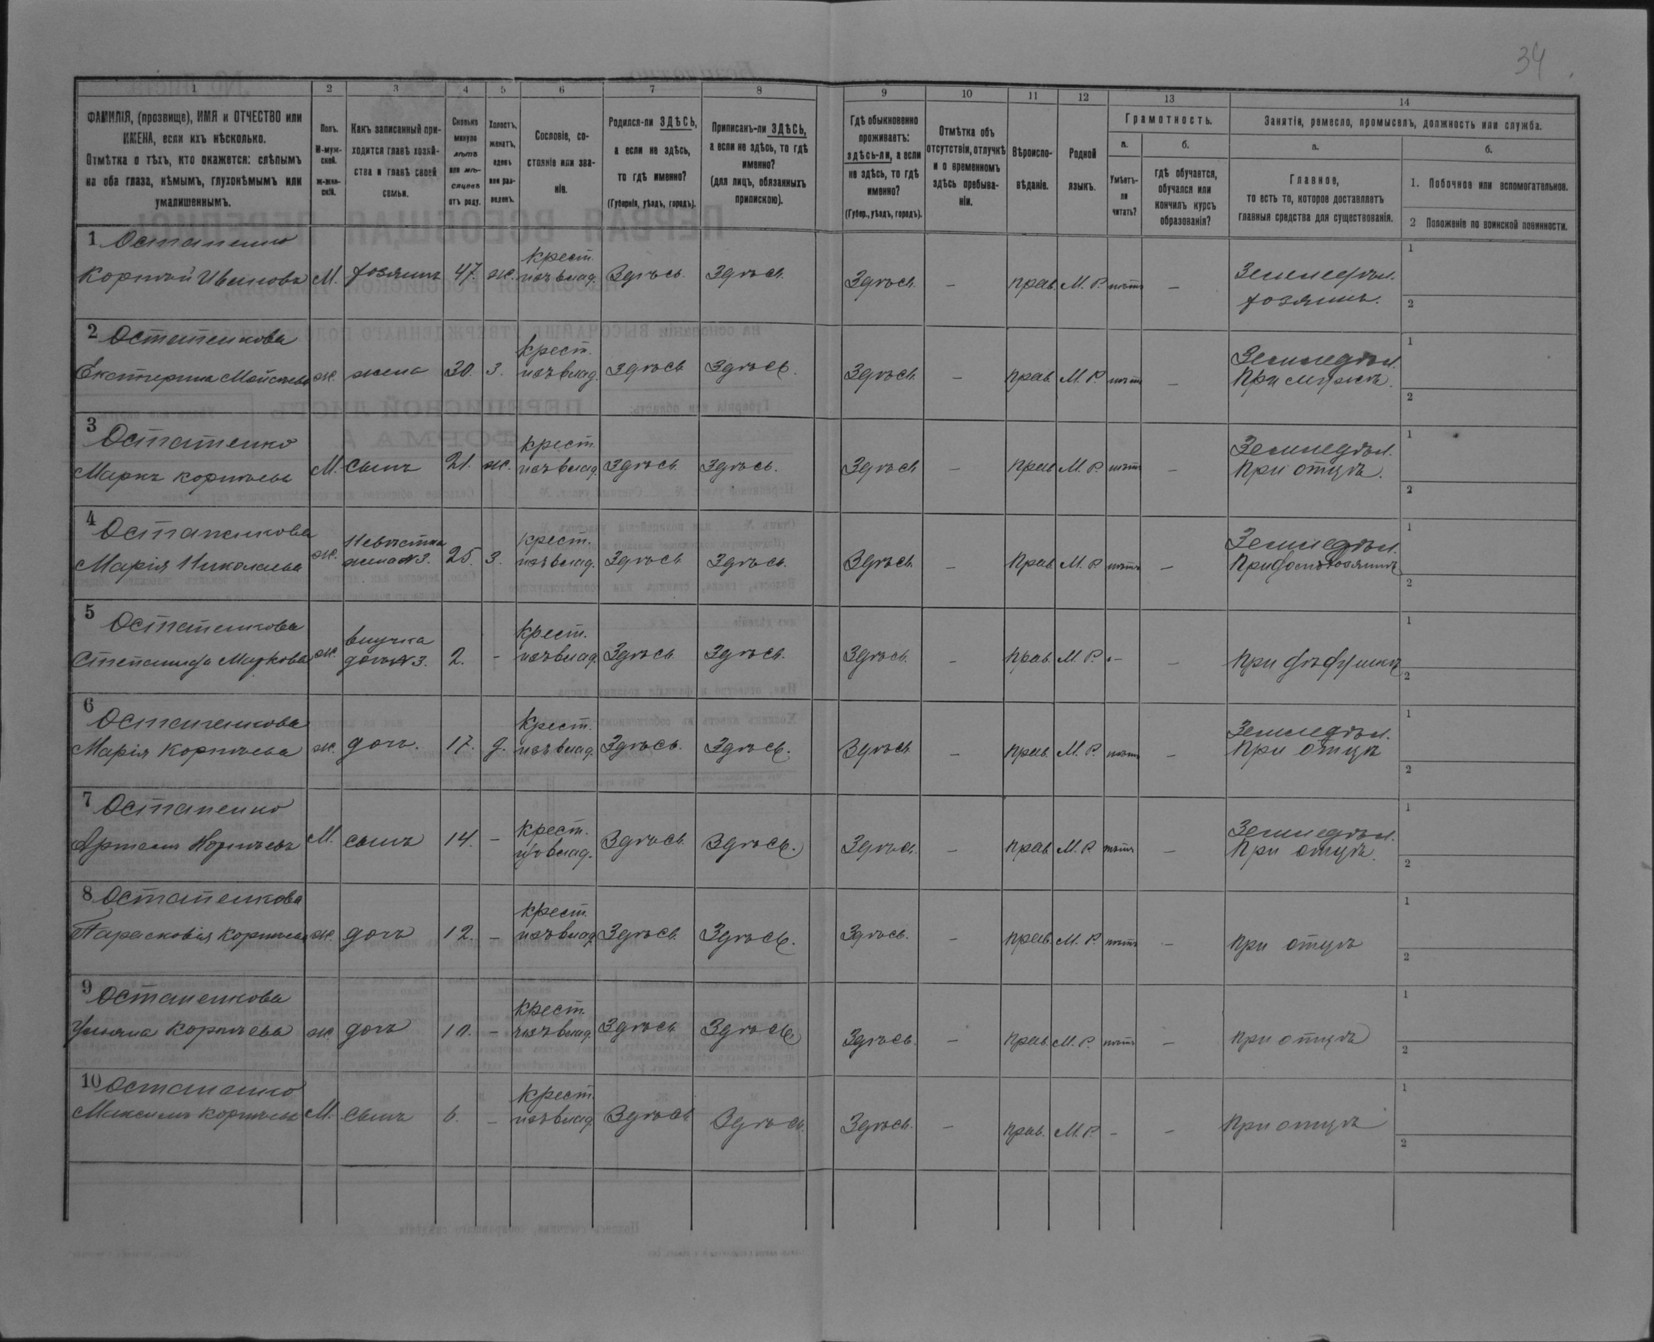 34
1 2 3 4 5 6 7 8 9 10 11 12 13 14
ФАМИЛІЯ, (прозвище), ИМЯ и ОТЧЕСТВО или
ИМЕНА, если ихъ нѣсколько.
Отмѣтка о тѣхъ, кто окажется: слѣпымъ
на оба глаза, нѣмымъ, глухонѣмымъ или
умалишеннымъ.
Полъ.
М-муж-
ской.
ж-жен-
скій.
Какъ записанный при-
ходится главѣ хозяй-
ства и главѣ своей
семьи.
Сколько
минуло
лѣтъ
или мѣ-
сяцевъ
отъ роду.
Холостъ,
женатъ,
вдовъ
или раз-
веденъ.
Сословіе, со-
стояніе или зва-
ніе.
Родился-ли ЗДѢСЬ,
а если не здѣсь,
то гдѣ именно?
(Губернія, уѣздъ, городъ).
Приписанъ-ли ЗДѢСЬ,
а если не здѣсь, то гдѣ
именно?
(для лицъ, обязанныхъ
припискою).
Гдѣ обыкновенно
проживаетъ:
здѣсь-ли, а если
не здѣсь, то гдѣ
именно?
(Губер., уѣздъ, городъ).
Отмѣтка объ
отсутствіи, отлучкѣ
и о временномъ
здѣсь пребыва-
ніи.
Вѣроиспо-
вѣданіе.
Родной
языкъ.
Грамотность.
а.
Умѣетъ-
ли
читать?
б.
гдѣ обучается,
обучался или
кончилъ курсъ
образованія?
Занятіе, ремесло, промыселъ, должность или служба.
а.
Главное,
то есть то, которое доставляетъ
главныя средства для существованія.
б.
1. Побочное или вспомогательное.
2 Положеніе по воинской повинности.
1 Остапенко крест. Земледѣл. 1
Корнѣй Ивановъ М. хозяинъ 47. ж. Здѣсь Здѣсь. Здѣсь — прав. М. Р. нѣтъ — хозяинъ. 2
2 Остапенкова крест. Земледѣл. 1
Екатерина ж. жена 30. з. здѣсь здѣсь. Здѣсь — прав. М. Р. нѣтъ — При мужѣ. 2
3 Остапенко крест. Земледѣл. 1
Маркъ Корнѣевъ М. сынъ 21. ж. здѣсь здѣсь. Здѣсь — прав М. Р. нѣтъ — При отцѣ. 2
4 Остапенкова Невѣстка крест. Земледѣл. 1
Марія Николаева ж. жена №3. 25. з. Здѣсь Здѣсь. Здѣсь — прав М. Р. нѣтъ — 2
5 Остапенкова внучка крест. 1
Степанида Маркова ж. дочь №3. 2. - Здѣсь Здѣсь. Здѣсь. — прав. М. Р. — — при дѣдушкѣ 2
6 Остапенкова крест. Земледѣл. 1
Марія Корнѣева ж. доч. 17. д. Здѣсь. Здѣсь. Здѣсь — прав. М. Р. нѣтъ — При отцѣ 2
7 Остапенко крест. Земледѣл. 1
Артемъ Корнѣевъ М. сынъ 14. - Здѣсь. Здѣсь. Здѣсь. — прав. М. Р. нѣтъ — При отцѣ. 2
8 Остапенкова крест. 1
Парасковія Корнѣева ж. дочь 12. - Здѣсь. Здѣсь. Здѣсь. — прав. М. Р. нѣтъ — при отцѣ 2
9 Остапенкова крест. 1
Ульяна Корнѣева ж дочь 10. - Здѣсь Здѣсь Здѣсь. — прав. М. Р. нѣтъ — при отцѣ 2
10 Остапенко крест. 1
Максимъ Корнѣевъ М. сынъ 6. - Здѣсь Здѣсь. Здѣсь. — прав. М. Р. - - При отцѣ 2